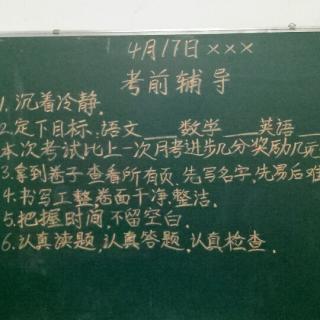 4月17日×××
考前辅导
1.沉着冷静.
2.定下目标.语文___数学___英语___
本次考试比上一次月考进步几分奖励几元
3.拿到卷子查看所有页.先写名字,先易后难
4.书写工整,卷面干净.整洁.
5.把握时间,不留空白.
6.认真读题,认真答题,认真检查.